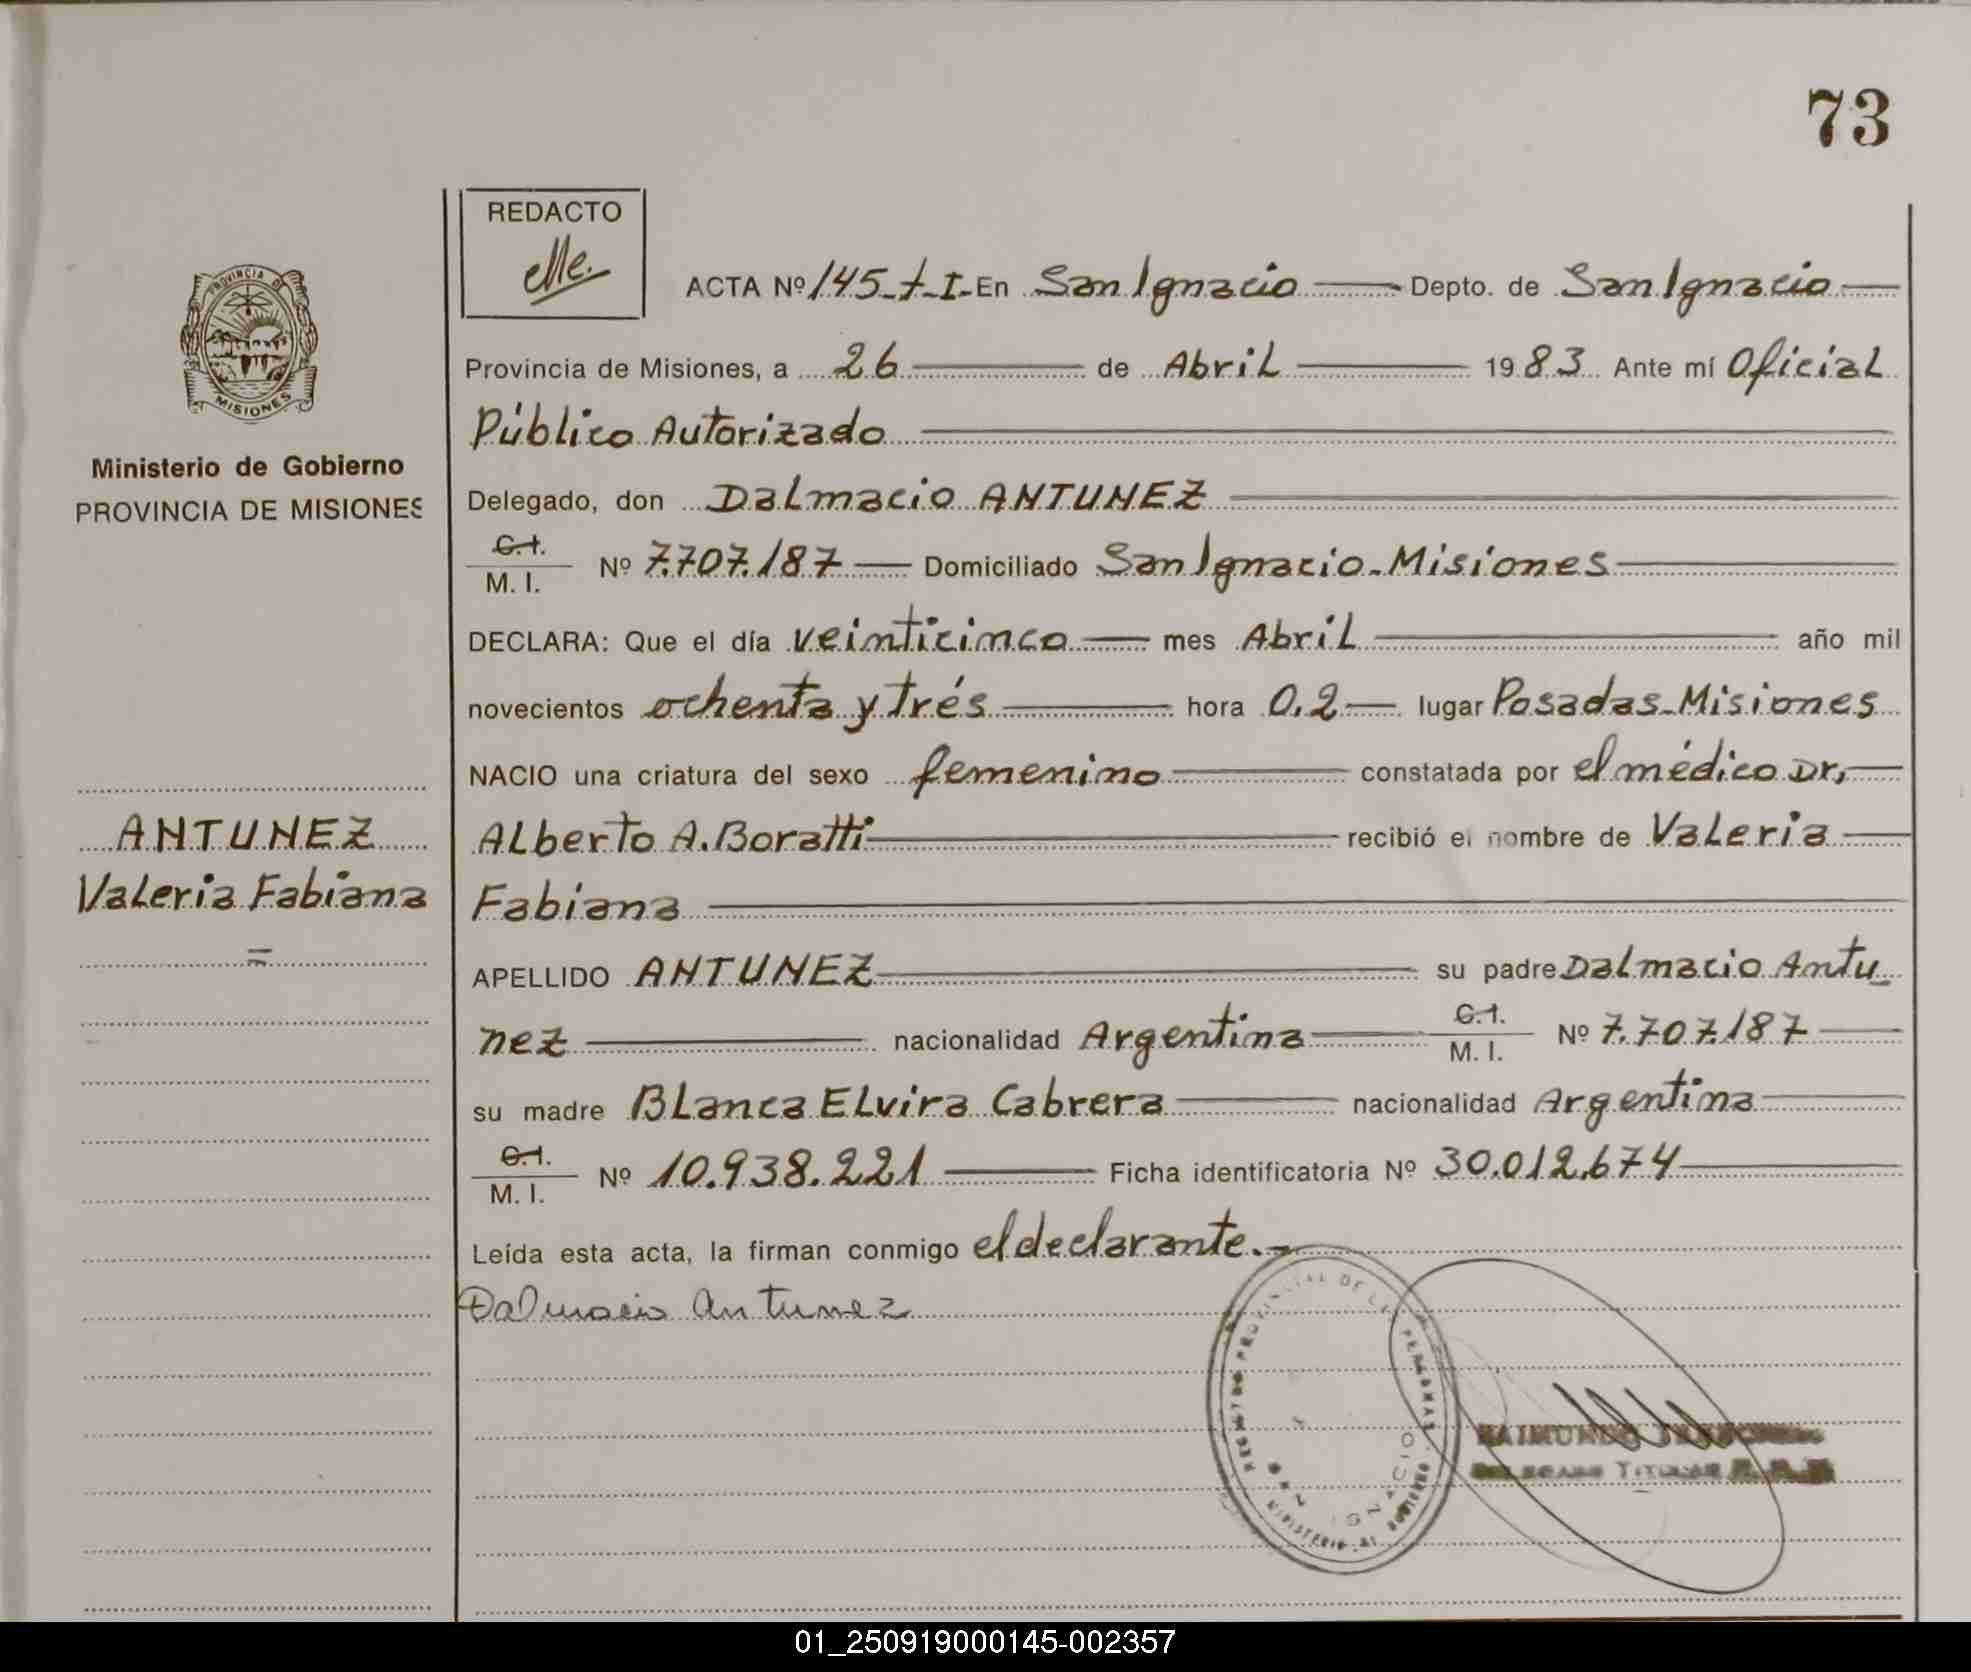 73
REDACTO
PROVINCIA DE
MISIONES
Ministerio de Gobierno
PROVINCIA DE MISIONES
ANTUNEZ
Valeria Fabiana
=
ACTA Nº 145-t-I- En San Ignacio — Depto. de San Ignacio —
Provincia de Misiones, a 26 — de Abril — 1983. Ante mí Oficial
Público Autorizado —
Delegado, don Dalmacio ANTUNEZ —
C.I.
M. I. Nº 7.707.187 — Domiciliado San Ignacio - Misiones —
DECLARA: Que el día veinticinco — mes Abril — año mil
novecientos ochenta y trés — hora 0,2 — lugar Posadas - Misiones
NACIO una criatura del sexo femenino — constatada por el médico Dr, —
Alberto A. Boratti — recibió el nombre de Valeria —
Fabiana —
APELLIDO ANTUNEZ — su padre Dalmacio Antu_
nez — nacionalidad Argentina — C.I. M. I. Nº 7.707.187 —
su madre Blanca Elvira Cabrera — nacionalidad Argentina —
C.I.
M. I. Nº 10.938.221 — Ficha identificatoria Nº 30.012.674 —
Leída esta acta, la firman conmigo el declarante. -
Dalmacio Antunez
REGISTRO PROVINCIAL DE LAS PERSONAS
SAN IGNACIO
MINISTERIO DE GOBIERNO
RAIMUNDO
DELEGADO TITULAR
01_250919000145-002357